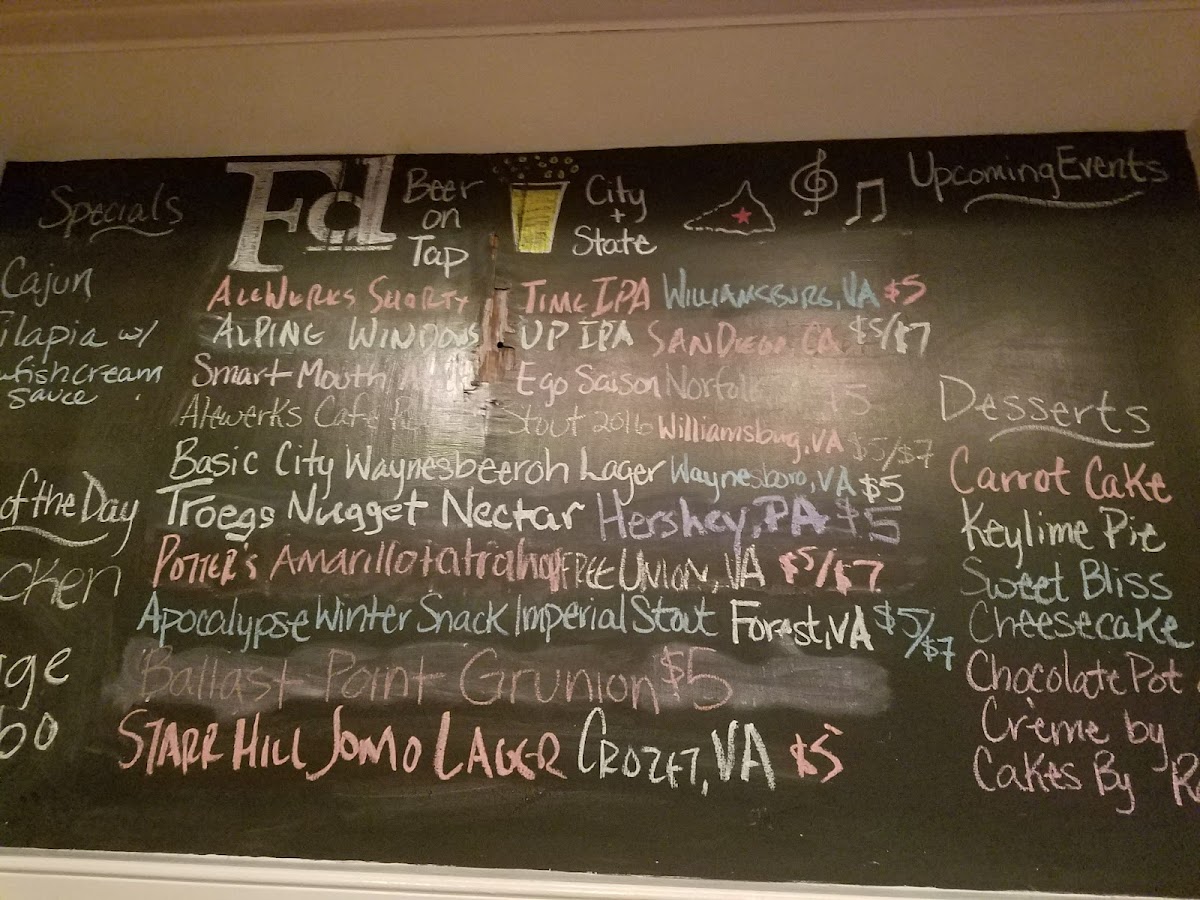 Specials
Cajun
ilapia w/
wfish cream
sauce
of the Day
cken
ge
bo
Fd
Beer
on
Tap
City
+
State
AleWerks Shorty Time IPA Williamsburg, VA $5
Alpine Windows Up IPA San Diego, CA $5/$7
Smart Mouth Ego Saison Norfolk 5
Alewerks Café Stout 2016 Williamsburg, VA $5/$7
Basic City Waynesbeeroh Lager Waynesboro, VA $5
Troegs Nugget Nectar Hershey, PA $5
Potter's Free Union, VA $5/$7
Apocalypse Winter Snack Imperial Stout Forest, VA $5/$7
Ballast Point Grunion $5
Starr Hill Jomo Lager Crozet, VA $5
Upcoming Events
Desserts
Carrot Cake
Keylime Pie
Sweet Bliss
Cheesecake
Chocolate Pot
Crème by
Cakes By